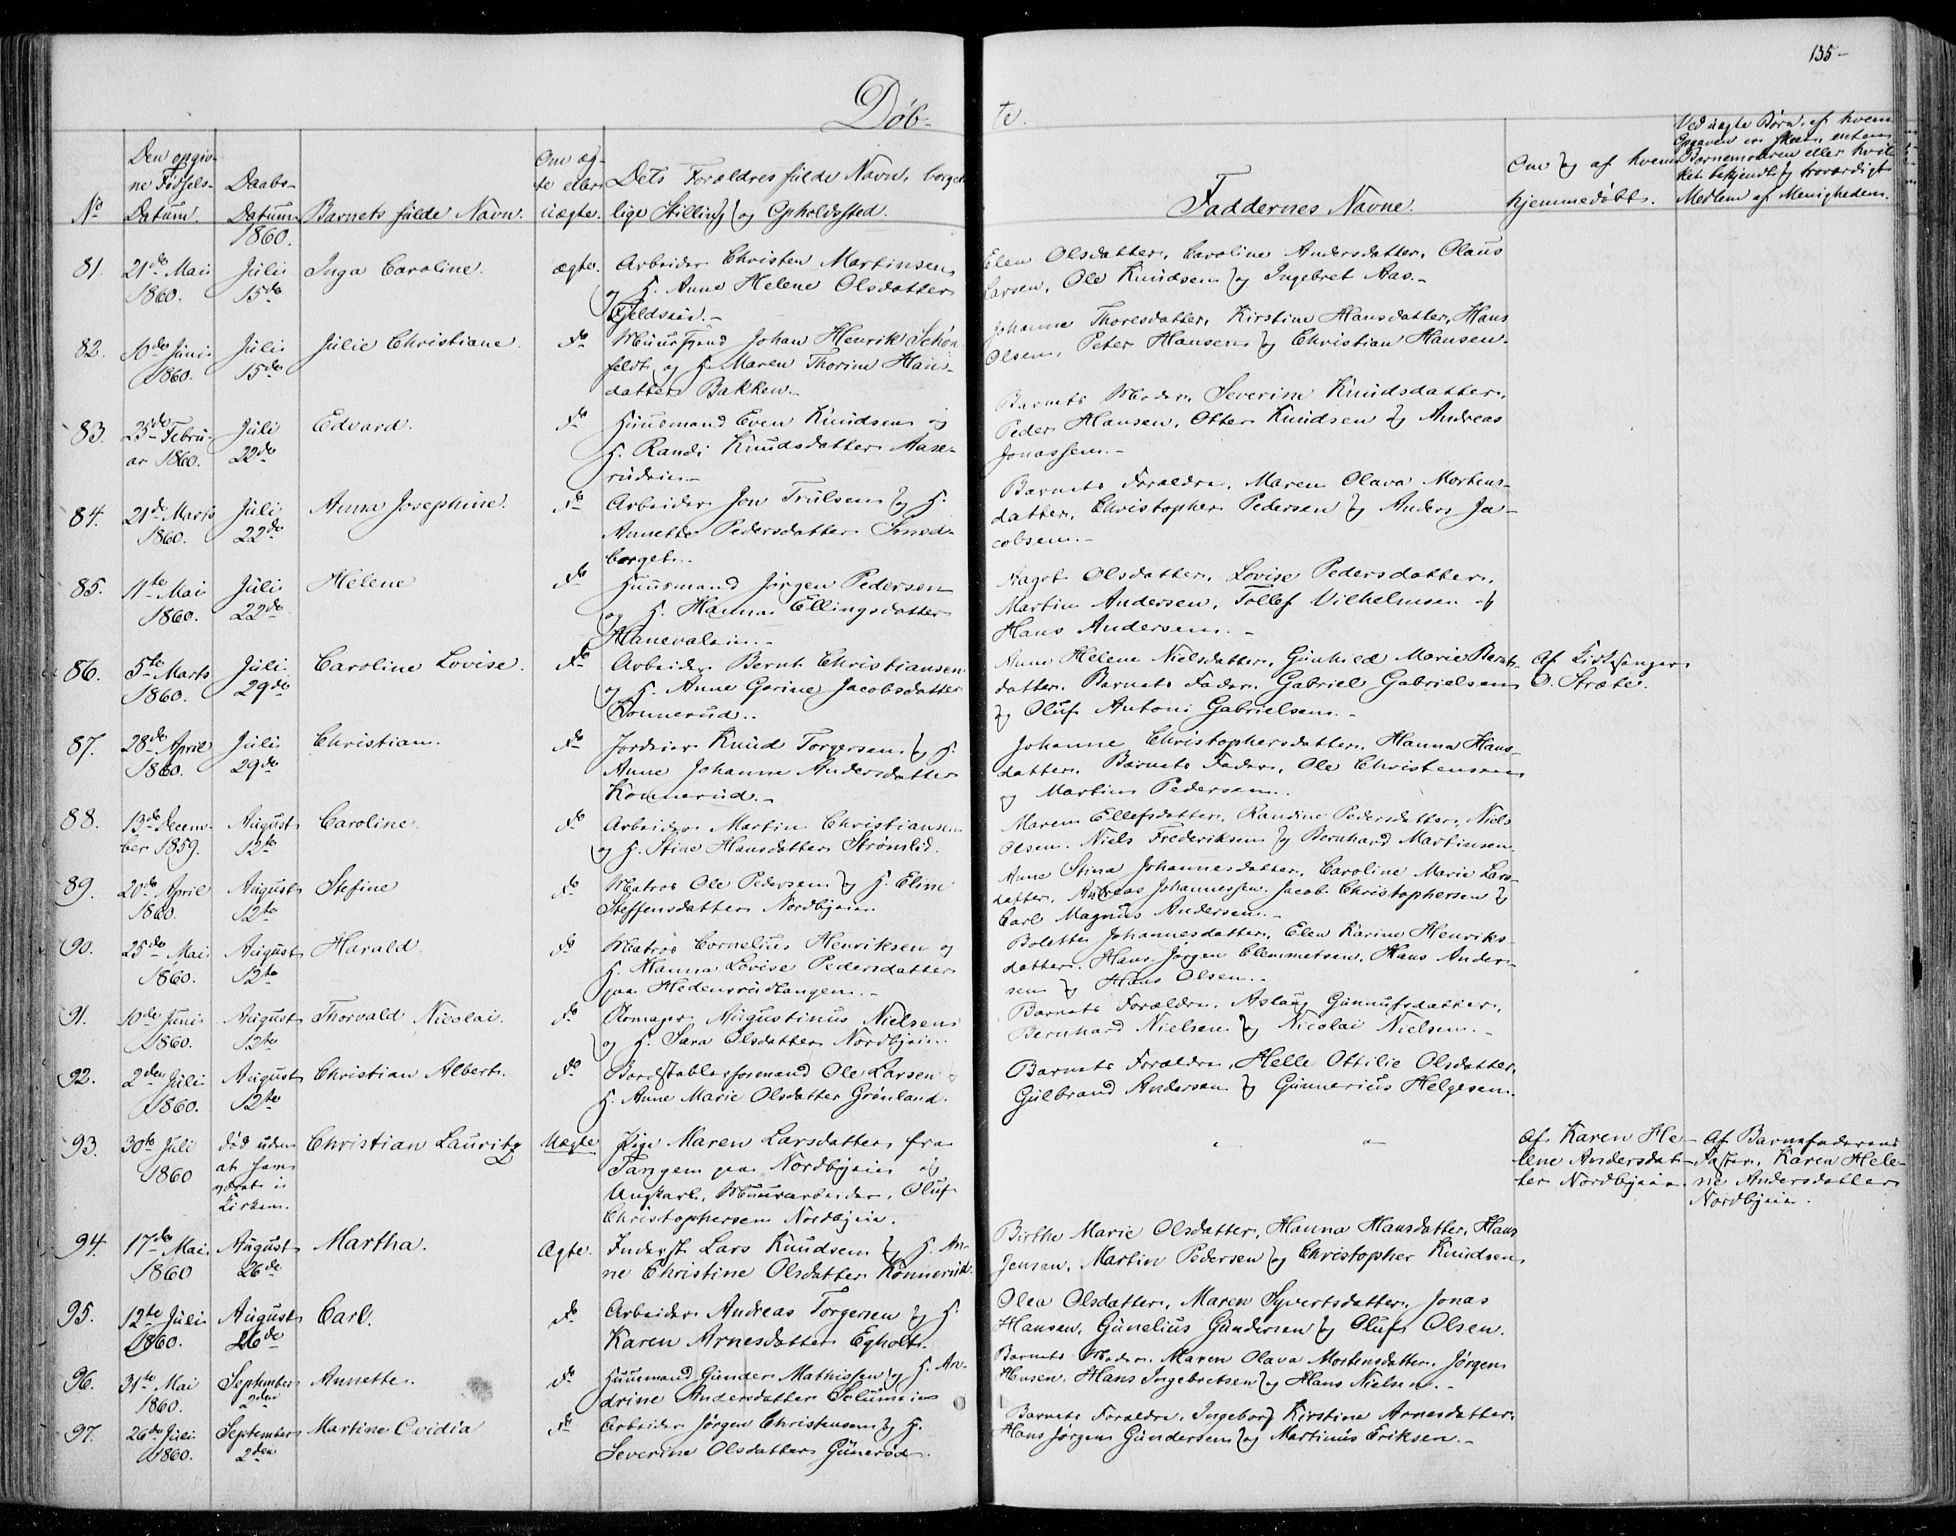 135 –
Døb-
te.
No
Den opgiv-
ne Fødsels-
Datum.
Daabs-
Datum
1860.
Barnets fulde Navn.
Om æg-
te eller
uægte.
Dets Forældres fulde Navn, borger-
lige Stilling og Opholdssted.
Faddernes Navne.
Om og af hvem
hjemmedøbt.
Ved uægte Børn, af hvem
Opgaven er skeet, enten
Barnemoderen eller hvil-
ket bekjendt og troværdigt
Medlem af Menigheden.
81. 21de Mai 1860. Juli 15de Inga Caroline. ægte.
Arbeider Christen Martinsen
og H. Anne Helene Olsdatter
Gjeldsaas.–
Elen Olsdatter, Caroline Andersdatter, Olaus
Larsen, Ole Knudsen og Ingebret Aas.–
82. 10de Juni 1860. Juli 15de Julie Christiane. do
Muursvend Johan Henrik Schøn-
feldt og H. Maren Thorine Hans-
datter Bakken.–
Johanne Thoresdatter, Kirstine Hansdatter, Hans
Olsen, Peter Hansen og Christian Hansen.
83. 23de Febru-
ar 1860. Juli 22de Edvard. do
Huusmand Even Knudsen og
H. Randi Knudsdatter Aase-
rudeie.–
Barnets Moder, Severine Knudsdatter,
Peder Hansen, Otter Knudsen og Andreas
Jonassen.–
84. 21de Marts 1860. Juli 22de Anna Josephine. do
Arbeider Jon Trulsen og H.
Annette Pedersdatter Smed-
borget.
Barnets Forældre, Maren Olava Mortens-
datter, Christopher Pedersen og Anders Ja-
cobsen.–
85. 11te Mai 1860. Juli 22de Helene do
Huusmand Jørgen Pedersen
og H. Hanna Ellingsdatter
Hanevoldeie.–
Aagot Olsdatter, Lovise Pedersdatter,
Martin Andersen, Tollef Vilhelmsen og
Hans Andersen.–
86. 5te Marts 1860. Juli 29de Caroline Lovise. do
Arbeider Bernt Christiansen
og H. Anne Gurine Jacobsdatter
Konnerud.
Anne Helene Nielsdatter, Gunhild Marie Bernts-
datter, Barnets Fader, Gabriel Gabrielsen
og Oluf Antoni Gabrielsen.–
Af Kirkesanger
O. Stræte.
87. 28de April 1860. Juli 29de Christian. do
Jordeier Knud Torgersen og H.
Anne Johanne Andersdatter
Konnerud.–
Johanne Christophersdatter, Hanna Hans-
datter, Barnets Fader, Ole Christensen
og Martin Pedersen.
88. 13de Decem-
ber 1859. August 12te Caroline. do
Arbeider Martin Christiansen
og H. Stine Hansdatter Strømlid.
Maren Ellefsdatter, Randine Pedersdatter, Niels
Olsen, Niels Frederiksen og Bernhard Martinsen.
89. 20de April 1860. August 12te Stefine do
Matros Ole Pedersen og H. Eline
Steffensdatter Nordbyeie.
Anne Stina Johannesdatter, Caroline Marie Lars-
datter, Andreas Johannessen, Jacob Christophersen og
Carl Magnus Andersen.–
90. 25de Mai 1860. August 12te Harald. do
Matros Cornelius Henriksen og
H. Hanna Lovise Pedersdatter
paa Hedensrudtangen.–
Bolette Johannesdatter, Elen Karine Henriks-
datter, Hans Jørgen Clemmetsen, Hans Ander-
sen og Hans Olsen.–
91. 10de Juni 1860. August 12te Thorvald Nicolai. do
Skomager Augustinus Nielsen
og H. Sara Olsdatter Nordbyeie.
Barnets Forældre, Aslaug Gunnufsdatter,
Bernhard Nielsen og Nicolai Nielsen.–
92. 2den Juli 1860. August 12te Christian Albert. do
Bordstablerformand Ole Larsen
H. Anne Marie Olsdatter Grønland.
Barnets Forældre, Helle Ottilie Olsdatter,
Gulbrand Andersen og Gunnerius Helgesen.
93. 30te Juli 1860 død uden
at have
været i
Kirken. Christian Lauritz Uægte
Pige Maren Larsdatter fra
Tangen paa Nordbyeie og
Ungkarl, Muurarbeider, Oluf
Christophersen Nordbyeie.
Af Karen He-
lene Andersdat-
ter Nordbyeie.
Af Barnefaderens
Faster, Karen Hele-
ne Andersdatter
Nordbyeie.
94. 17de Mai 1860 August 26de Martha. Ægte.
Inderst Lars Knudsen og H. An-
ne Christine Olsdatter Konnerud.
Birthe Marie Olsdatter, Hanna Hansdatter, Hans
Jensen, Martin Pedersen og Christopher Knudsen
95. 12te Juli 1860. August 26de Carl. do
Arbeider Andreas Torgersen og H.
Karen Arnesdatter Egholt.
Olea Olsdatter, Maren Syvertsdatter, Jonas
Hansen, Gunelius Gundersen og Oluf Olsen.
96. 31te Mai 1860. September 2den Annette. do
Huusmand Gunder Mathissen og H. An-
drine Andersdatter Solumeie
Barnets Moder, Maren Olava Mortensdatter, Jørgen
Hansen, Hans Ingebretsen og Hans Nielsen.–
97. 26de Juli 1860. September 2den Martine Ovidia do
Arbeider Jørgen Christensen og H.
Severine Olsdatter Gunerød.
Barnets Forældre, Ingeborg Kirstine Arnesdatter,
Hans Jørgen Gundersen og Martinus Eriksen.–